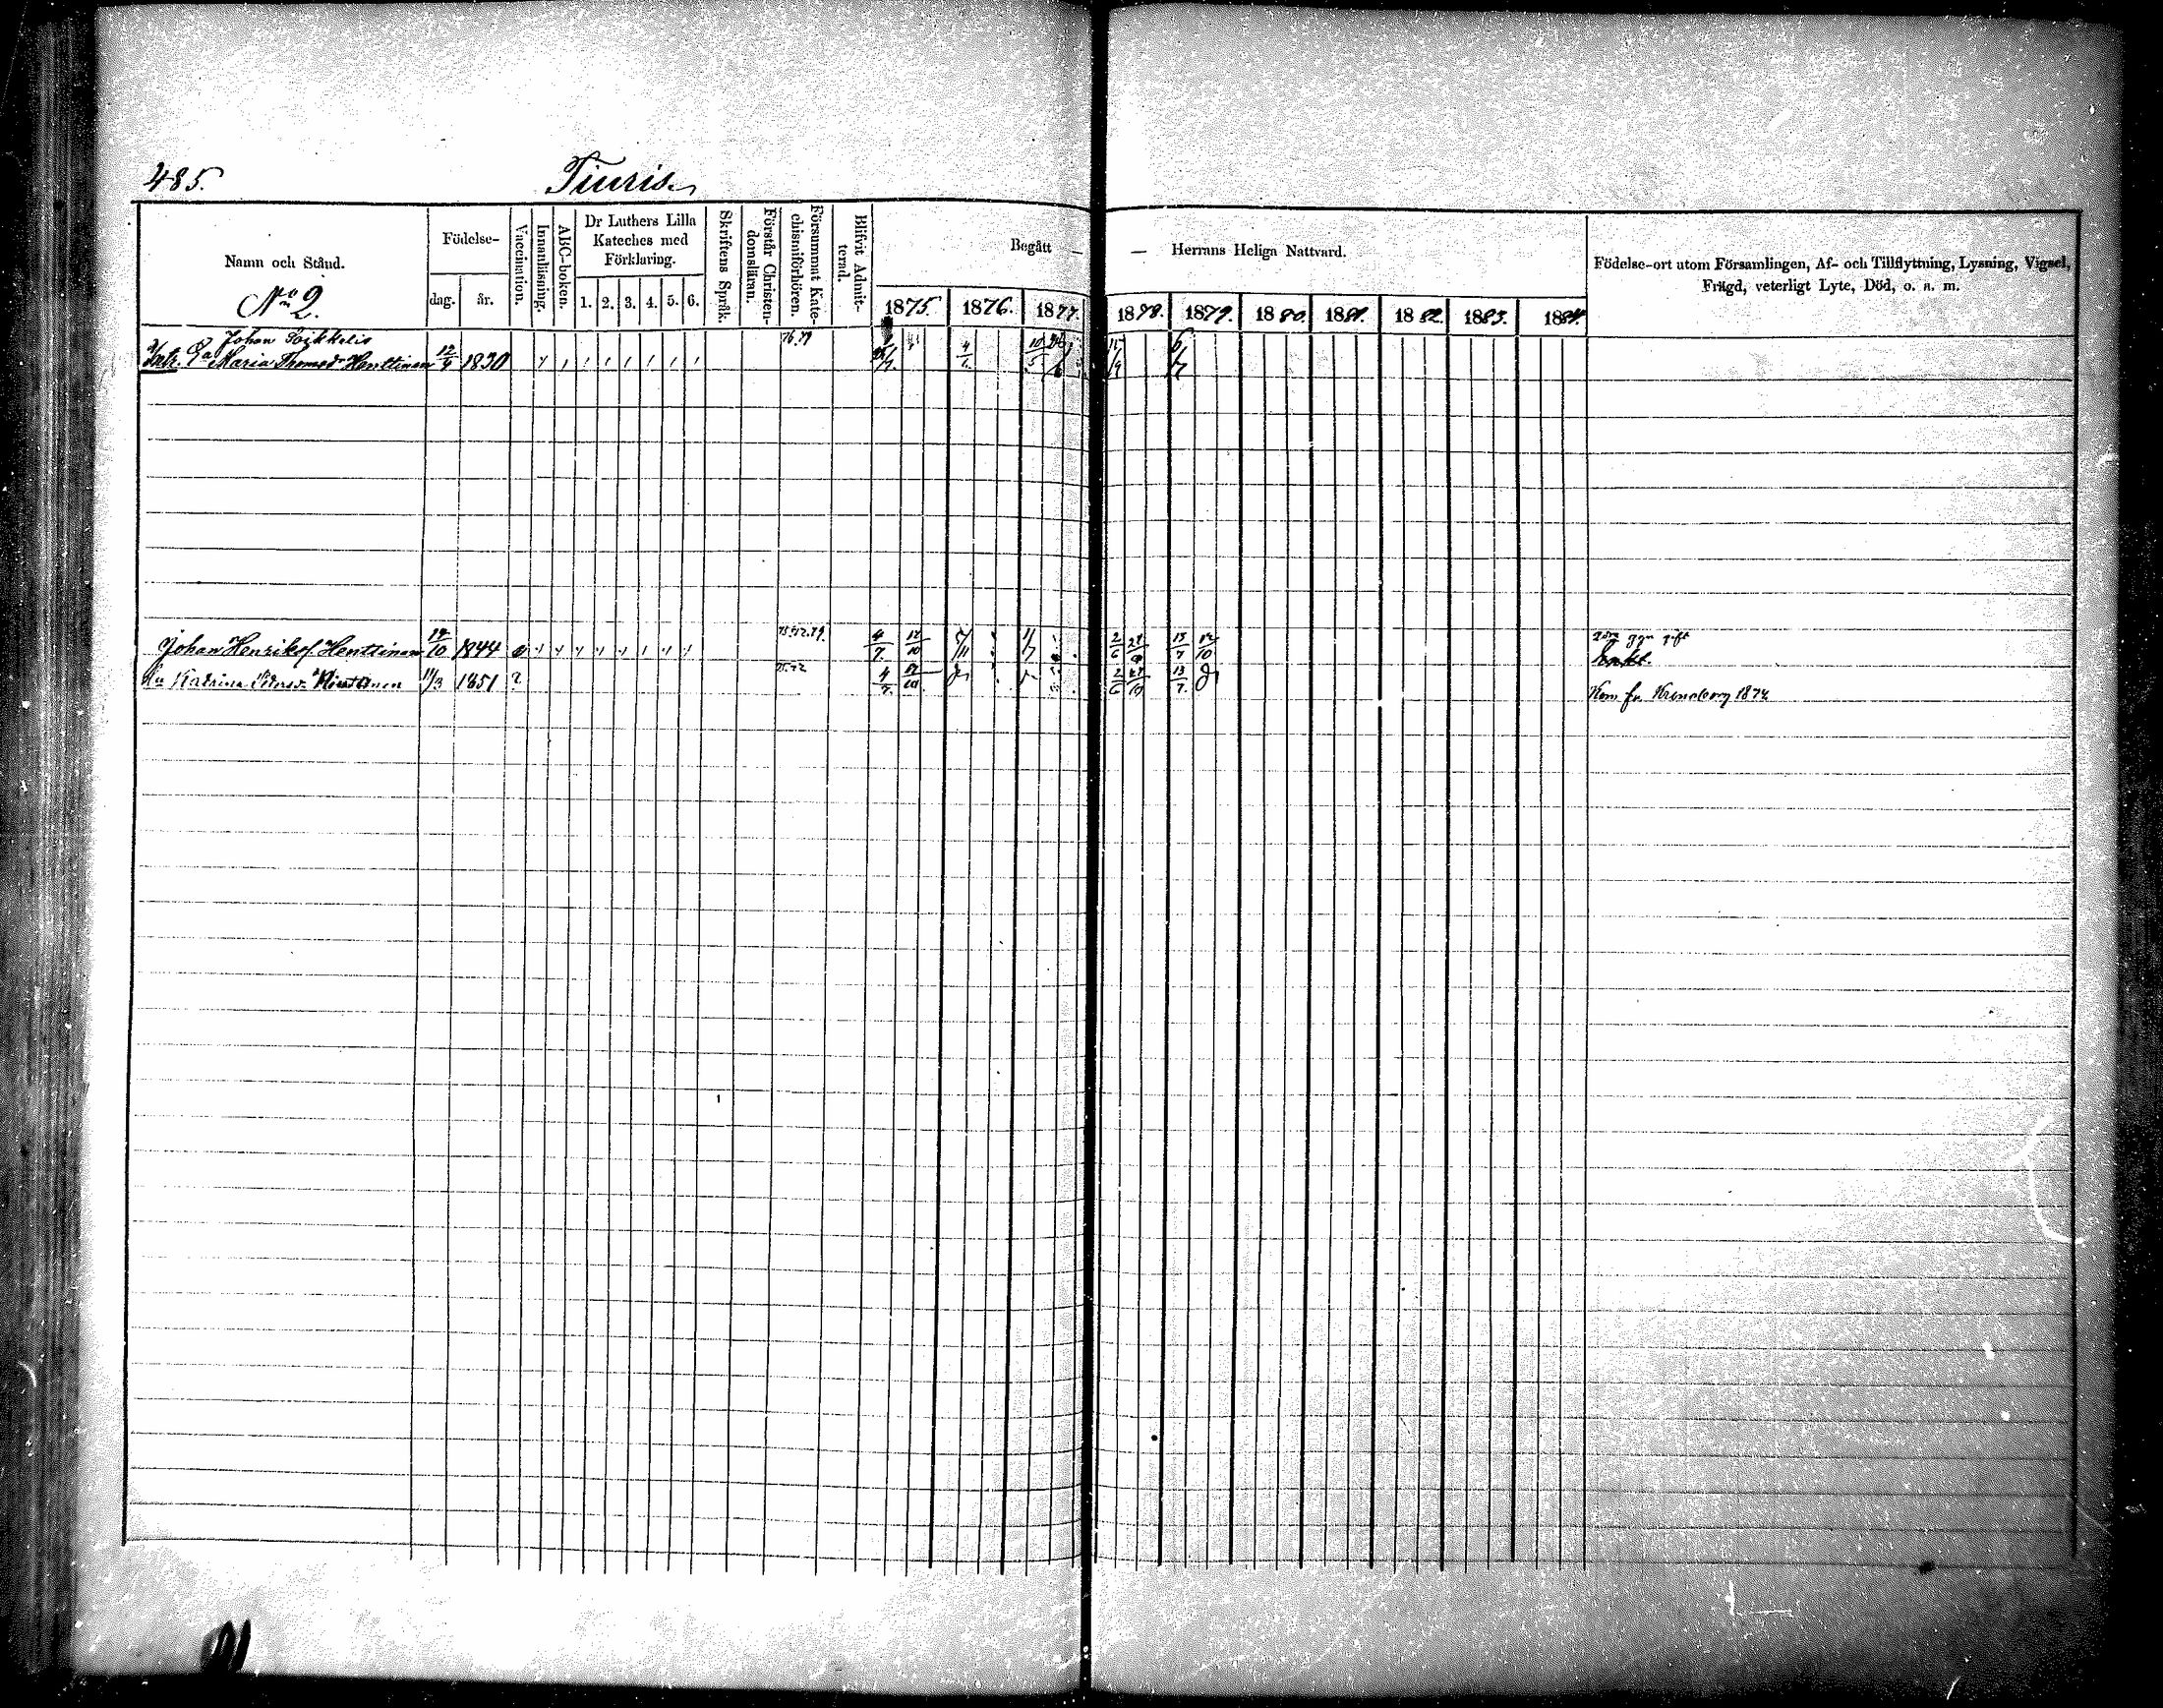 485.
Tiuris.
Namn och Stånd.
No 2.
Födelse-
dag.
år.
Vaccination.
Innanläsning.
ABC-boken.
Dr Luthers Lilla
Kateches med
Förklaring.
1. 2. 3. 4. 5. 6.
Skriftens Språk.
Förstår Christen-
domsläran.
Försummat Kate-
chismiförhören.
Blifvit Admit-
terad.
Begått — — Herrans Heliga Nattvard.
1875. 1876. 1877. 1878. 1879. 1880. 1881. 1882. 1883. 1884.
Födelse-ort utom Församlingen, Af- och Tillflyttning, Lysning, Vigsel,
Frägd, veterligt Lyte, Död, o. s. m.
Johan Soikkelis
Maria Thomsdr Henttinen 12/4 1830 76.79 4/1 10/5 6/7
Johan Henriks. Henttinen 19/10 1844 4/7 12/10 5/11 1/7 2/6 13/7 12/10
Katrina Pedersdr 11/3 1851 ? 4/7 2/6 13/7
Kom fr. Kronoborg 1874